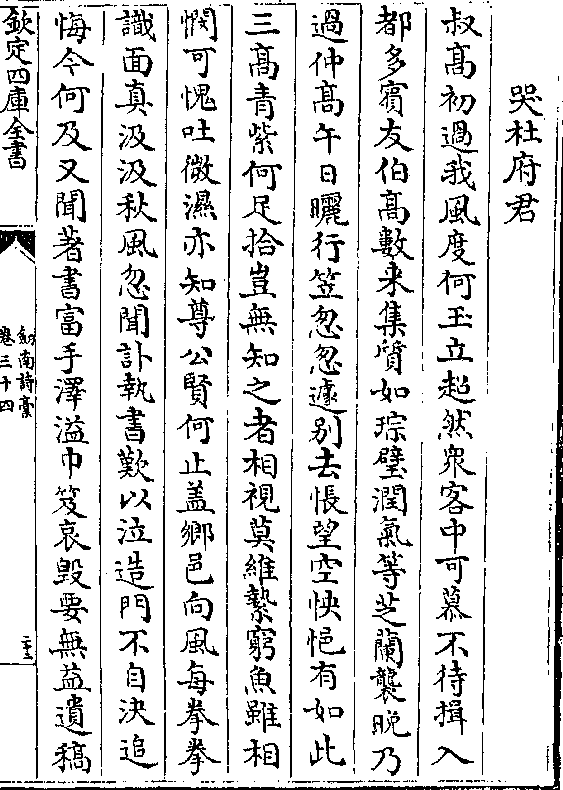 哭杜府君
叔髙初過我風度何玉立超然衆客中可慕不待揖入
都多賔友伯髙數来集質如琮璧潤氣等芝蘭襲晚乃
過仲髙午日曬行笠忽忽遽别去悵望空怏悒有如此
三髙青紫何足拾豈無知之者相視莫維縶窮魚雖相
憫可愧吐微濕亦知尊公賢何止盖鄉邑向風每拳拳
識面真汲汲秋風忽聞訃執書歎以泣造門不自決追
悔今何及又聞著書富手澤溢巾笈哀毀要無益遺稿
欽定四庫全書
劍南詩稾
卷三十四
二十三